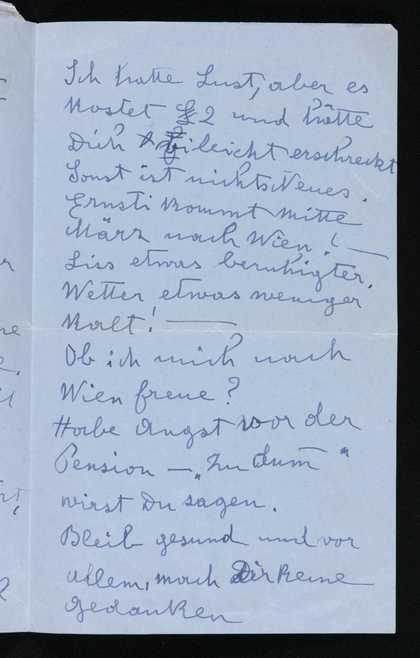 Ich hatte Lust, aber es
kostet £2 und hätte
Dich vileicht erschreckt
Sonst ist nichts Neues.
Ernsti kommt Mitte
März nach Wien! —
Liss etwas beruhigter,
Wetter etwas weniger
kalt! —
Ob ich mich nach
Wien freue?
Habe Angst vor der
Pension — „Zu dum"
wirst Du sagen.
Bleib gesund und vor
allem, mach Dir keine
Gedanken